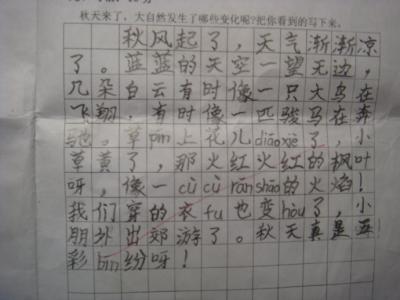 秋天来了，大自然发生了哪些变化呢?把你看到的写下来。
秋风起了，天气渐渐凉
了。蓝蓝的天空一望无边，
几朵白云有时像一只大鸟在
飞翔，有时像一匹骏马在奔
驰。草pín上花儿diāoxiè了，小
草黄了，那火红火红的枫叶
呀，像一cù cù ránshāo的火焰！
我们穿的衣fu也变hòu了，小
朋外出郊游了。秋天真是五
彩bīn纷呀！